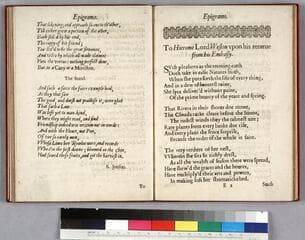 Epigrams.
That likening, and approach so one to th'other,
Till either grew a portion of the other,
Each
The copy of his friend;
You
And
Nor
But in a Cary or a Morison.
The Stand.
And such a force the fair example had,
As they that saw
The good, and durst not practise it, were glad
That such a Law
Was left yet to man-kind;
Where they might read, and find
Friendship indeed was written not in words:
And with the Heart, not Pen,
Of two so early men,
Whose Lines her Rowles were, and records
Who, e're the first down bloomed on the chin,
Had sow'd these fruits, and got the harvest in.
To
Epigrams.
To Hierome Lord Weston upon his returne
from his Embassy.
Such pleasure as the teeming earth
Doth take in easie Natures birth,
When she puts forth the life of every thing,
And in a dew of sweetest raine,
She lyes deliver'd without paine,
Of the prime beauty of the yeare and spring.
That Rivers in their shores doe runne,
The Clouds rake cleare before the Sunne,
The rudest winds obey the calmest aire;
Rare plants from every banke doe rise,
And every plant the sence surprise,
Because the order of the whole is faire.
The very verdure of her nest,
Wherein she sits so richly drest,
As all the wealth of season there were spread,
Have show'd the graces and the houres,
Have multiply'd their arts and powers,
In making soft her
E 2
Such